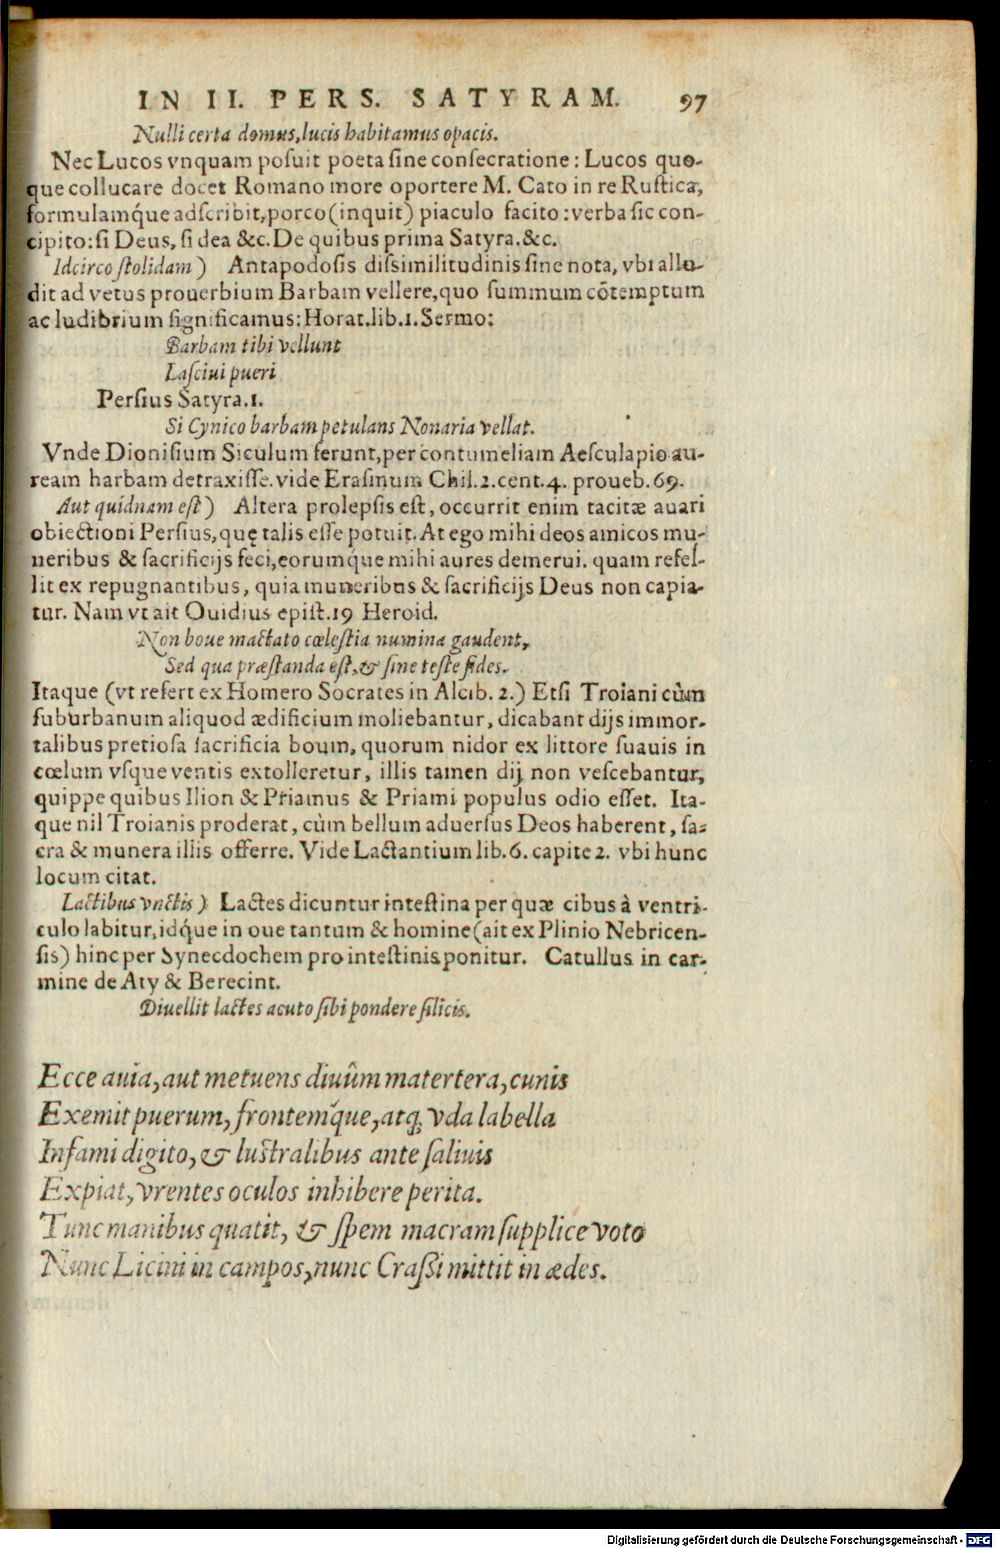 IN II. PERS. SATYRAM. 97
Nulli certa domus, lucis habitamus opacis.
Nec Lucos vnquam posuit poeta sine consecratione: Lucos quo-
que collucare docet Romano more oportere M. Cato in re Rustica,
formulamq́ue adscribit, porco (inquit) piaculo facito: verba sic con-
cipito: si Deus, si dea &c. De quibus prima Satyra. &c.
Idcirco stolidam) Antapodosis dissimilitudinis sine nota, vbi allu-
dit ad vetus prouerbium Barbam vellere, quo summum cōtemptum
ac ludibrium significamus: Horat. lib. 1. Sermo:
Barbam tibi vellunt
Lasciui pueri
Persius Satyra. 1.
Si Cynico barbam petulans Nonaria vellat.
Vnde Dionisium Siculum ferunt, per contumeliam Aesculapio au-
ream harbam detraxisse. vide Erasmum Chil. 2. cent. 4. proueb. 69.
Aut quidnam est) Altera prolepsis est, occurrit enim tacitæ auari
obiectioni Persius, quę talis esse potuit. At ego mihi deos amicos mu-
neribus & sacrificijs feci, eorumq́ue mihi aures demerui. quam refel-
lit ex repugnantibus, quia muneribus & sacrificijs Deus non capia-
tur. Nam vt ait Ouidius epist. 19 Heroid.
Non boue mactato cœlestia numina gaudent,
Sed qua præstanda est, & sine teste fides.
Itaque (vt refert ex Homero Socrates in Alcib. 2.) Etsi Troiani cùm
suburbanum aliquod ædificium moliebantur, dicabant dijs immor-
talibus pretiosa sacrificia boum, quorum nidor ex littore suauis in
cœlum vsque ventis extolleretur, illis tamen dij non vescebantur,
quippe quibus Ilion & Priamus & Priami populus odio esset. Ita-
que nil Troianis proderat, cùm bellum aduersus Deos haberent, sa-
cra & munera illis offerre. Vide Lactantium lib. 6. capite 2. vbi hunc
locum citat.
Lactibus vnctis) Lactes dicuntur intestina per quæ cibus à ventri-
culo labitur, idq́ue in oue tantum & homine (ait ex Plinio Nebricen-
sis) hinc per Synecdochem pro intestinis ponitur. Catullus in car-
mine de Aty & Berecint.
Diuellit lactes acuto sibi pondere silicis.
Ecce auia, aut metuens diuûm matertera, cunis
Exemit puerum, frontemq́ue, atq; vda labella
Infami digito, & lustralibus ante saliuis
Expiat, vrentes oculos inhibere perita.
Tunc manibus quatit, & spem macram supplice voto
Nunc Licini in campos, nunc Crassi mittit in ædes.
Digitalisierung gefördert durch die Deutsche Forschungsgemeinschaft - DFG